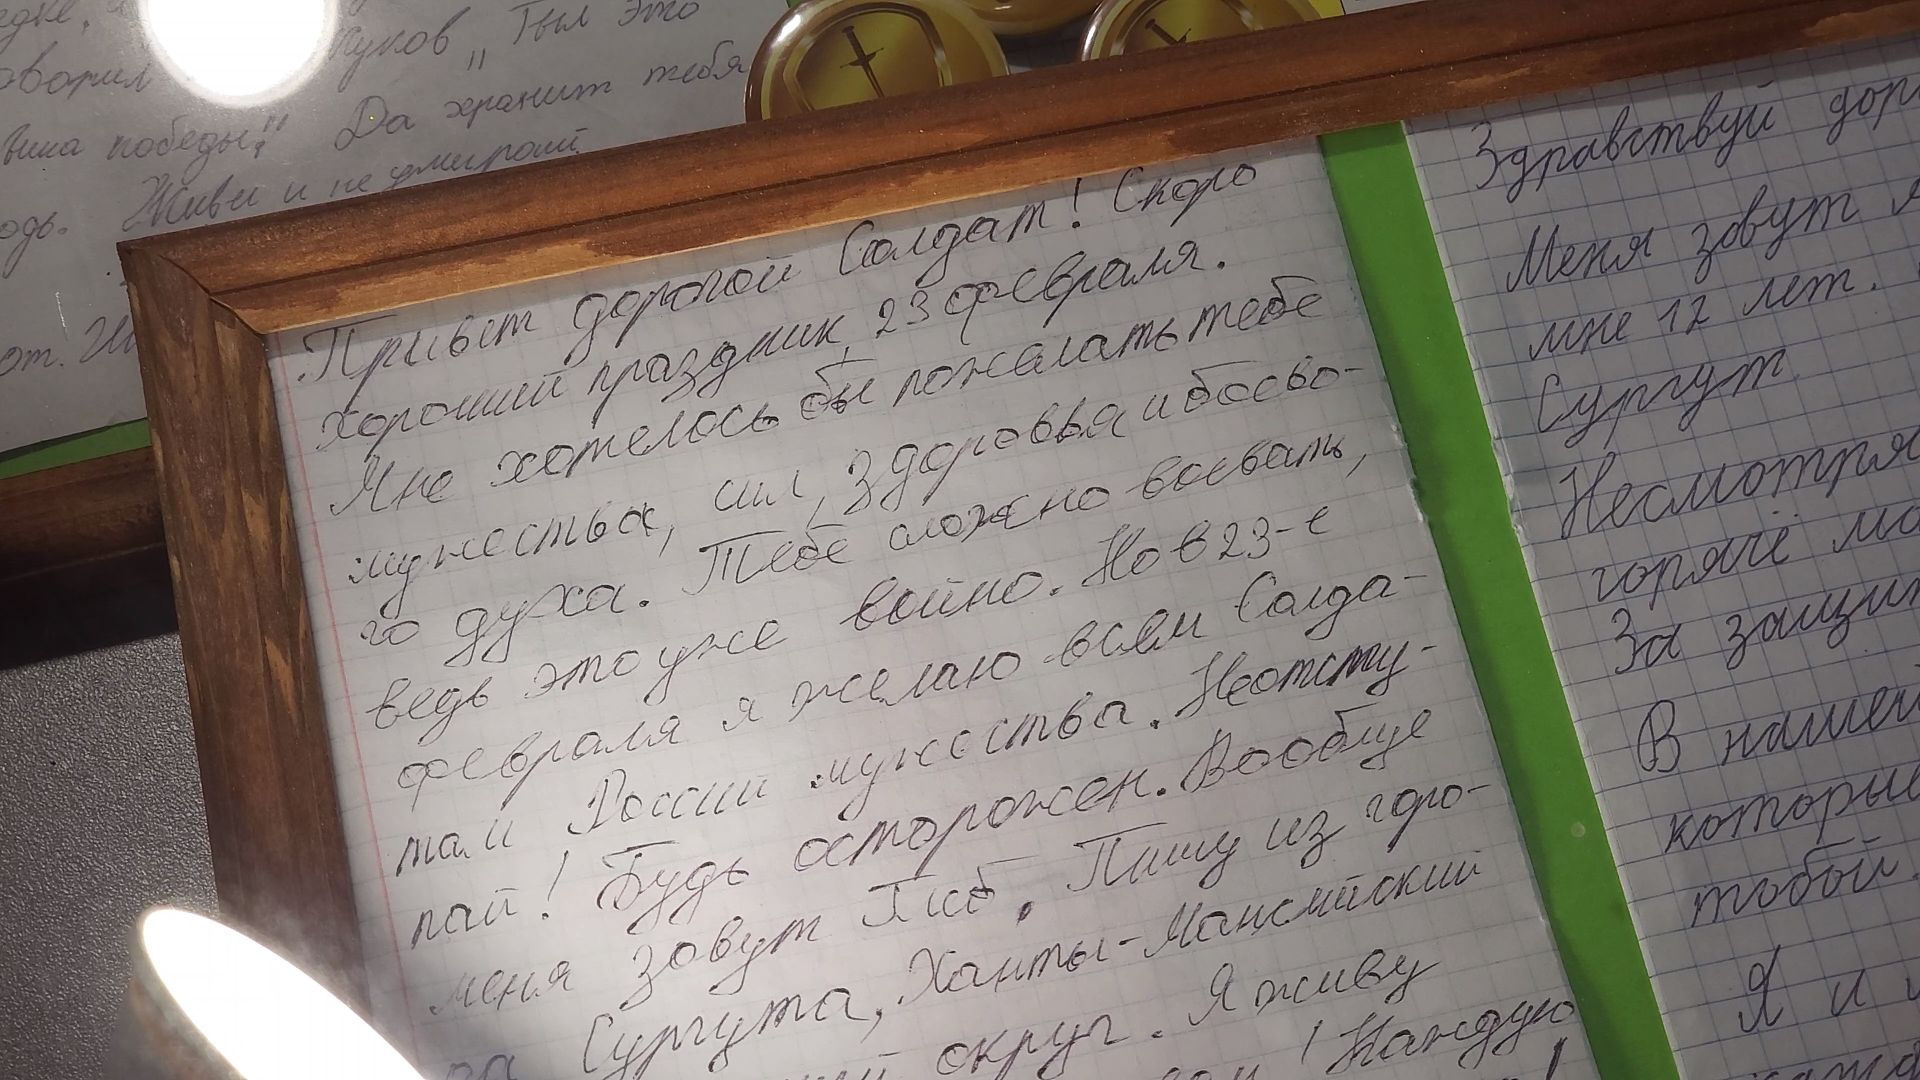 Куков "Тыл это
победы". Да хранит тебя
Живи и не умирай.
Привет дорогой Солдат! Скоро
хороший праздник, 23 февраля.
Мне хотелось бы пожелать тебе
мужества, сил, здоровья и боево-
го духа. Тебе сложно воевать,
ведь это уже война. Но в 23-е
февраля я желаю всем Солда-
там России мужества. Неотсту-
пай! Будь осторожен. Вообще
меня зовут Глеб. Пишу из горо-
да Сургута, Ханты-Мансийский
округ. Я живу
! Каждую
Здравствуй
Меня зовут
мне 12 лет.
Сургут
Несмотря
горячё
За
В нашей
которые
тобой
Я и